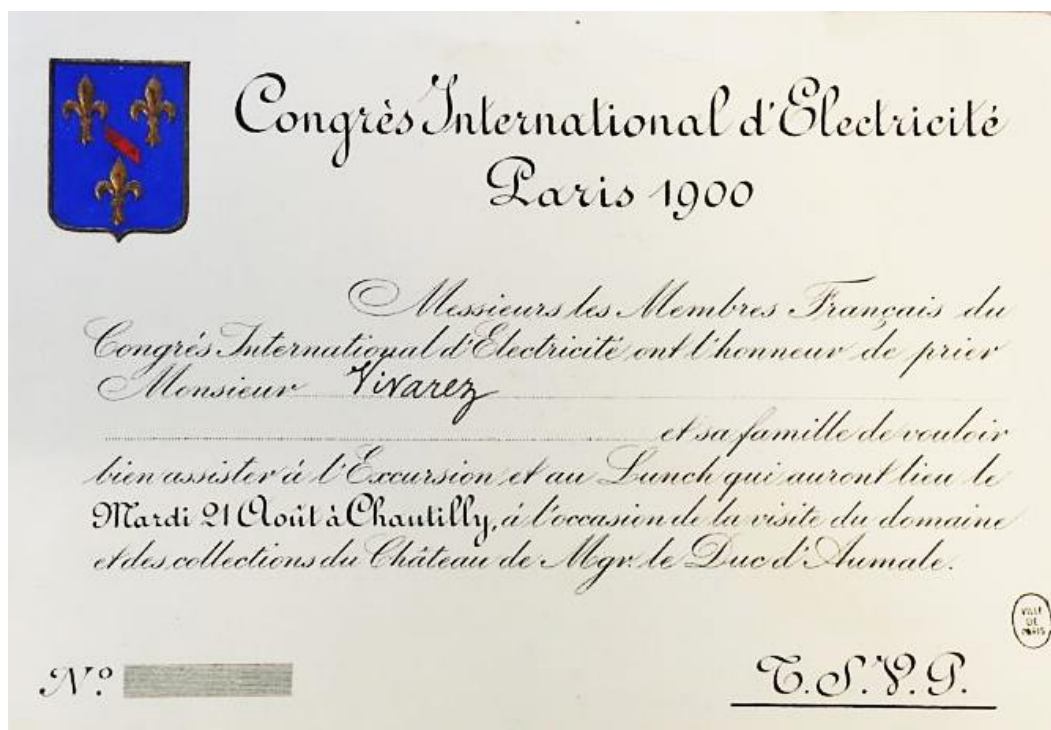 Congrès International d'Electricité
Paris 1900
Messieurs les Membres Français du
Congrés International d'Electricité ont l'honneur de prier
Monsieur Vivarez
et sa famille de vouloir
bien assister à l'Excursion et au Lunch qui auront lieu le
Mardi 21 Août à Chantilly, à l'occasion de la visite du domaine
et des collections du Château de Mgr. le Duc d'Aumale.
VILLE
DE
PARIS
Nº
T.S.V.P.